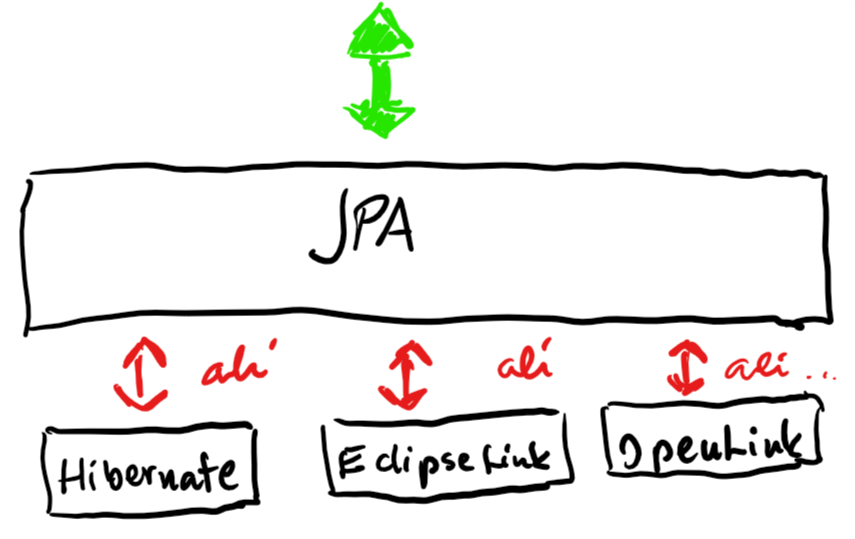 JPA
ali ali ali...
Hibernate EclipseLink OpenLink